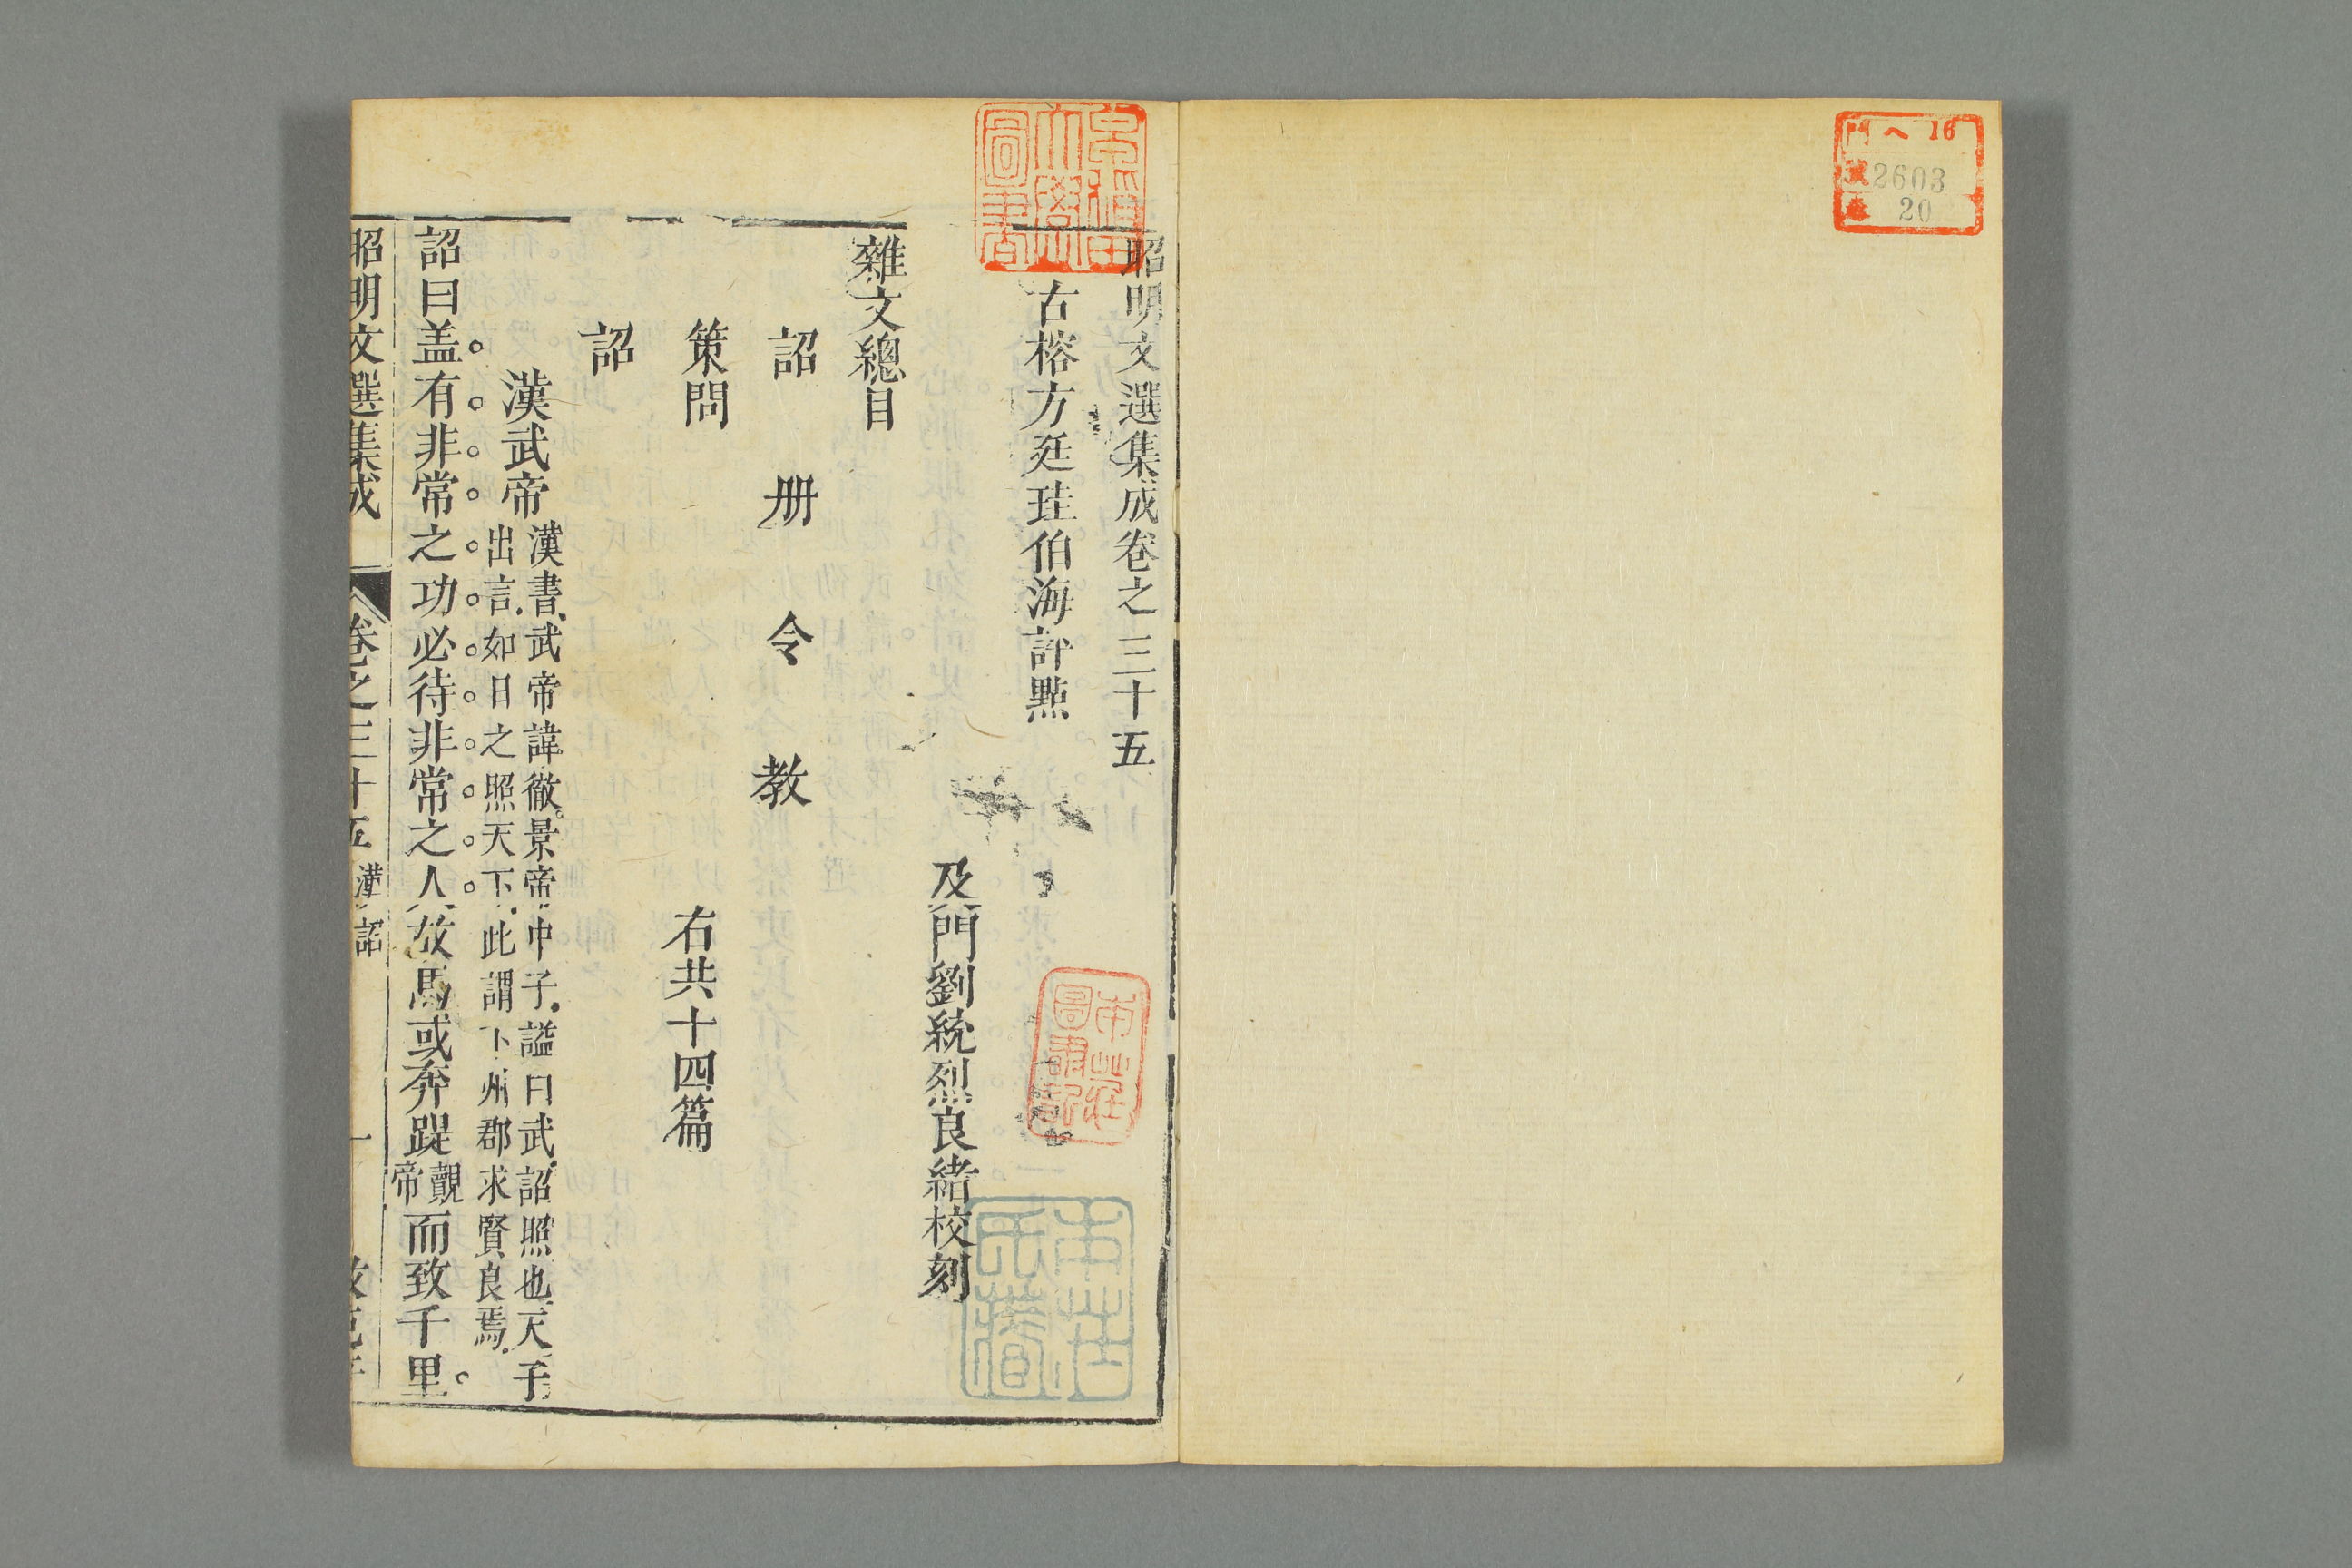 門 ヘ 16
號 2603
卷 20
早稲田大學圖書
昭明文選集成卷之三十五
古榕方廷珪伯海評點
南莊圖書記
及門劉統烈良緒校刻
雜文總目
詔 册 令 教
策問
右共十四篇
詔
漢武帝
漢書武帝諱徹景帝中子謚曰武詔照也天子
出言如日之照天下此謂下州郡求賢良焉
詔曰盖有非常之功必待非常之人故馬或奔踶觀帝而致千里
昭明文選集成 卷之三十五 漢詔 一